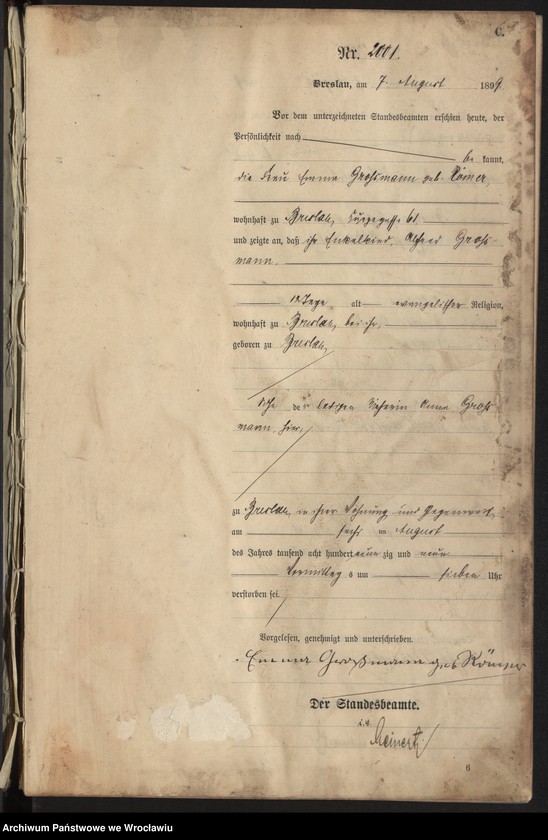 C.
Nr. 2001.
Breslau, am 7. August 1899
Vor dem unterzeichneten Standesbeamten erschien heute, der
Persönlichkeit nach
be kannt,
die Frau Emma Großmann geb. Römer,
wohnhaft zu Breslau, 61
und zeigte an, daß ihr Enkelkind, Alfred Groß-
mann,
Tage alt evangelischer Religion,
wohnhaft zu Breslau, bei ihr,
geboren zu Breslau,
Sohn der ledigen Näherin Anna Groß-
mann, hier,
zu Breslau, in ihrer Wohnung und Gegenwart,
am sechs ten August
des Jahres tausend acht hundert neun zig und neun
Vormittag s um sieben Uhr
verstorben sei.
Vorgelesen, genehmigt und unterschrieben.
Emma Großmann geb Römer
Der Standesbeamte.
i.V.
Meinert
6
Archiwum Państwowe we Wrocławiu